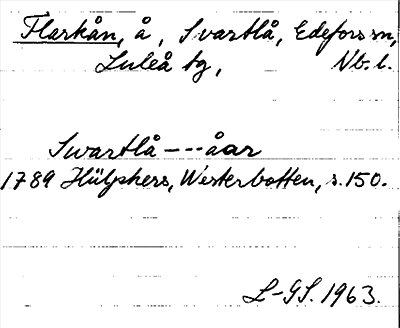 Flarkån, å, Svartlå, Edefors sn,
Luleå tg, Nb. l.
Svartlå --- åar
1789 Hülphers, Westerbotten, s. 150.
L-GS. 1963.